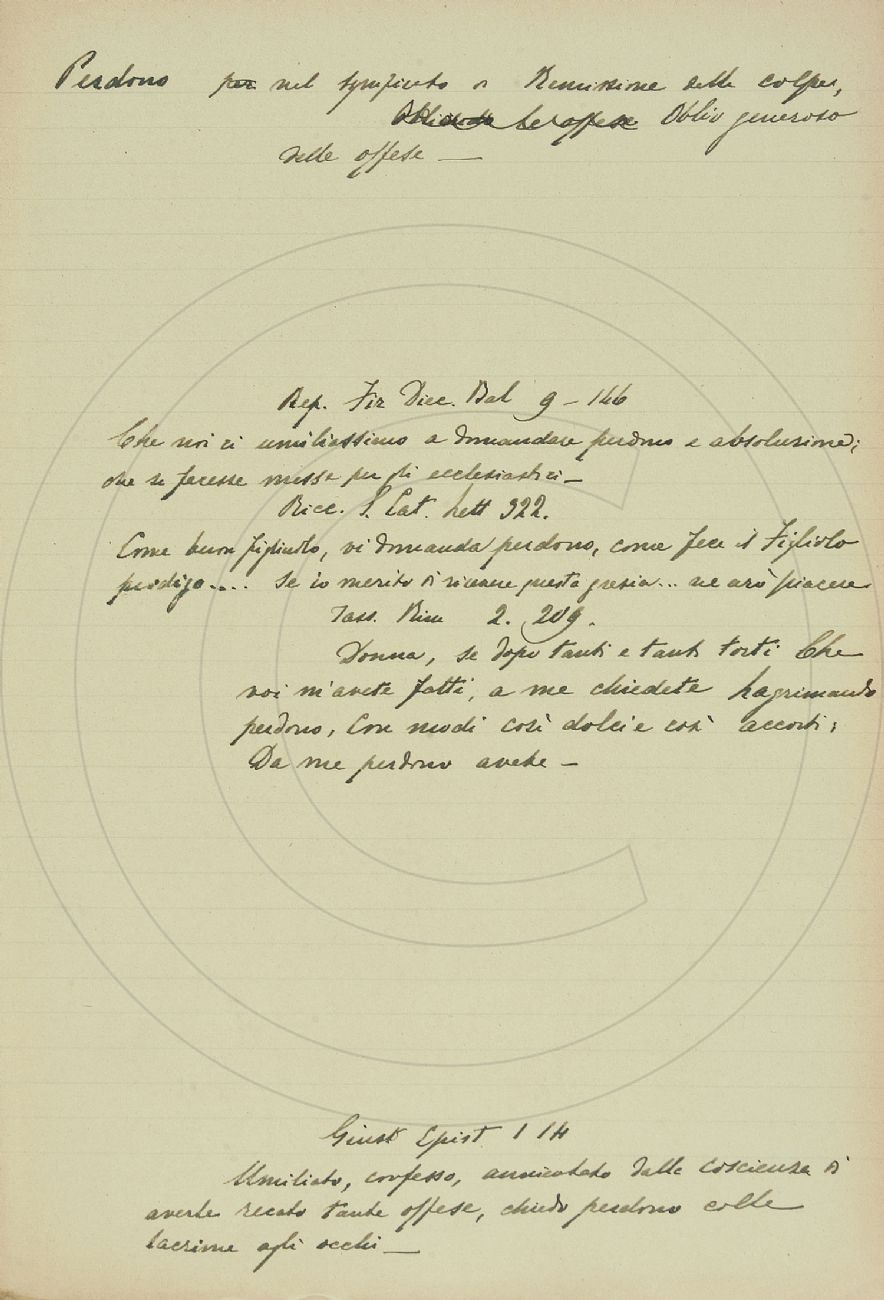 Perdono per nel significato di Remissione delle colpe,
le offese Oblio generoso
delle offese —
Rep. Fir Dice. Bal 9 - 146
Che noi ci umiliassimo a domandare perdono e absolusione;
che si facesse messe per gli ecclesiastici —
Ricc. S. Cat. Lett 322.
Come buon figliuolo, vi domanda perdono, come fece il Figliolo
prodigo.... Se io merito di ricevere questa grazia... ne arò piacere
Tass. Rim 2. 209.
Donna, se dopo tanti e tanti torti Che
voi m'avete fatti, a me chiedete Lagrimando
perdono, Con modi così dolci e così accorti;
Da me perdono avete —
Giust Epist 1 14
Umiliato, confesso, annientato dalla coscienza di
averle recato tante offese, chiedo perdono colle
lacrime agli occhi —